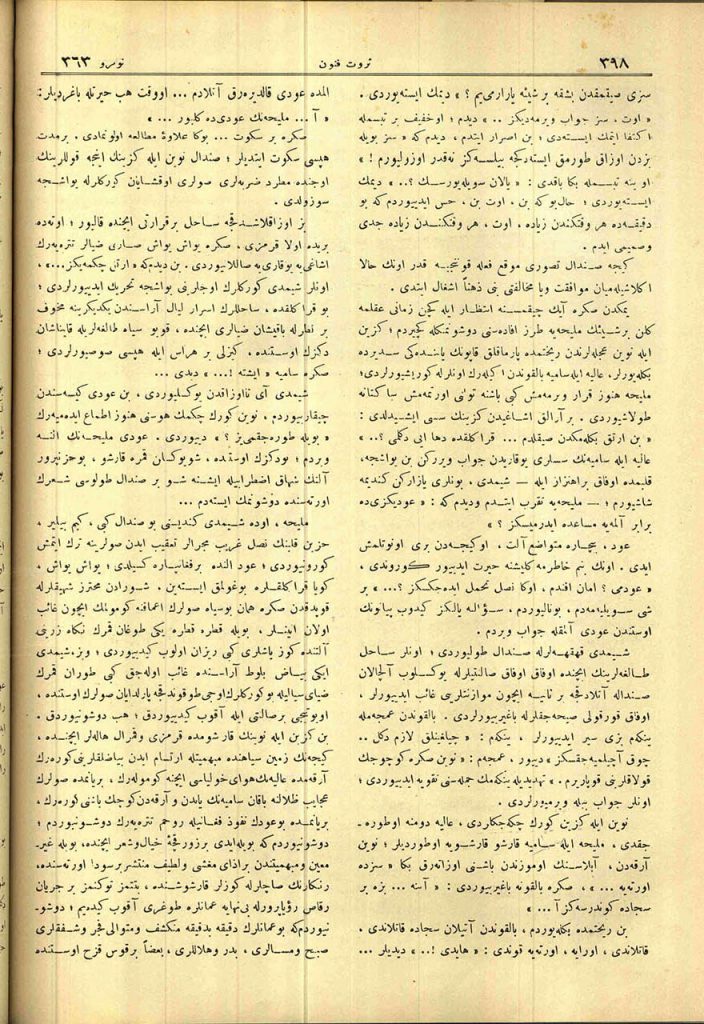 ٣٩٨
ثروت فنون
نومرو ٣٦٣
سزی صیقمقدن بشقه بر شیئه یارارمی یم ؟ » دیمك ایسته یوردی .
« اوت ، سز جواب ویرمه دیکز .. » دیدم ؛ اوخفیف بر تبسمله
اکتفا ایتمك ایسته دی ؛ بن اصرار ایتدم ، دیدم که « سز بویله
بزدن اوزاق طورمق ایسته دکجه بیلسه کز نه قدر اوزولیورم ! »
او ینه تبسمله بکا باقدی : « یالان سویله یورسك ؟.. » دیمك
ایسته یوردی ؛ حال بوکه بن ، اوت بن ، حس ایدییوردم که بو
دقیقه ده هر وقتکندن زیاده ، اوت ، هر وقتکنــدن زیاده جدی
وصمیمی ایدم .
کیجه صندال تصوری موقع فعله قونجیه قدر اونك حالا
اکلاشیله میان موافقت ویا مخالفتی بنی ذهناً اشغال ایتدی .
یمکدن صکره آیك چیقمسنه انتظار ایله کچن زمانی عقلمه
کلن برشیئك ملیحه یه طرز افاده سنی دوشونمکله کچیردم ؛ کزین
ایله نوین عجله لرندن ریختمده پارماقلق قاپونك یاننده کی سدیرده
بکله یورلر . عالیه ایله سامیه بالقوندن اکیله رك اونلرله کوریشیورلردی ؛
ملیحه هنوز قرار ویرمه مش کبی باشنه تولنی اورتمه مش ساکتانه
طولاشیوردی . بر آرالق اشاغیدن کزینك سسی ایشیدلدی :
« بن ارتق بکله مکدن صیقلدم ... قراکلقده دها ایی دکلمی ؟.. »
عالیه ایله سامیه نك سسلری یوقاریدن جواب ویررکن بن یواشجه ،
قلبمده اوفاق براهتزاز ایله — شیمدی ، بونلری یازارکن کندیمه
شاشیورم ؛ — ملیحه یه تقرب ایتدم ودیدم که : « عودیکزی ده
برابر آلمه یه مساعده ایدرمیسکز ؟ »
عود ، بیچاره متواضع آلت ، اوکیجه دن بری اونوتلمش
ایدی . اونك بنم خاطرمه کلیشنه حیرت ایدییور کوروندی ،
« عودمی ؟ امان افندم ، اوکا نصل تحمل ایده جکسکز ؟... » بر
شی سویلیه مه دم ، بونالیوردم ، ســؤاله یالکز کیدوب پیانونك
اوستندن عودی آلمقله جواب ویردم .
شیمدی قهقهه لرله صندال طولیوردی ؛ اونلر ساحل
طالغه لرینك ایچنده اوفاق اوفاق صالنتیلرله یوکسلوب آلچالان
صنداله آتلادقجه بر ثانیه ایچون موازنتلرینی غائب ایدییورلر ،
اوفاق قورقولی صیحه جقلرله باغیرییورلردی . بالقوندن عمجه مله
ینکه م بزی سیر ایدییورلر ، ینکه م : « چیلغینلق لازم دکل ..
چوق آچیلمیه جقسکز » دییور ، عمجه م : « نوین صکره کوچوجك
قولاقلرینی قوپاریرم . » تهدیدیله ینکه مك جمله سنی تقویه ایدییوردی ؛
اونلر جواب بیله ویرمیورلردی .
نوین ایله کزین کورك چکه جکلردی ، عالیه دومنه اوطوره -
جقدی ، ملیحه ایله سامیه قارشو قارشویه اوطوردیلر ؛ نوین
آرقه دن ، آبلاسنك اوموزندن باشنی اوزاته رق بکا « سزده
اورتهیه ... » ، صکره بالقونه باغیرییوردی : « آننه ... بزه بر
سجاده کوندرسه کز آ ... »
بن ریختمده بکله یوردم ، بالقوندن آتیلان سجاده قاتلاندی ،
قاتلاندی ، اورایه ، اورتهیه قوندی : « هایدی !.. » دیدیلر ...
المده عودی قالدیره رق آتلادم ... اووقت هپ حیرتله باغردیلر :
« آ ... ملیحه نك عودی ده کلیور ... »
صکره بر سکوت ... بوکا علاوهٔ مطالعه اولونمادی . برمدت
هپسی سکوت ایتدیلر ؛ صندال نوین ایله کزینك اینجه قوللرینك
اوجنده مطرد ضربه لری صولری اوقشایان کورکلرله یواشجه
سوزولدی .
بز اوزاقلاشدقجه ساحل بر قرارتی ایچنده قالیور ؛ اوتهده
بریده اولا قرمزی ، صکره یواش یواش صاری ضیالر تتره یه رك
اشاغی یه یوقاری یه صاللانیوردی . بن دیدم که « ارتق چکمه یکز... » ،
اونلر شیمدی کورکلرك اوجلرینی یواشجه تحریك ایدییورلردی ؛
بو قراکلقده ، ساحللرك اسرار لیال آراسندن یکدیکرینه مخوف
بر نظرله باقیشان ضیالری ایچنده ، قویو سیاه طالغه لریله قایناشان
دکزك اوستنده ، کیزلی بر هراس ایله هپسی صوصیورلردی ؛
صکره سامیه « ایشته !... » دیدی ...
شیمدی آی تا اوزاقدن یوکسلیوردی ، بن عودی کیسه سندن
چیقارییوردم ، نوین کورك چکمك هوسنی هنوز اطماع ایده میه رك
« بویله طوره جقمی یز ؟ » دییوردی . عودی ملیحه نك الننه
ویردم ؛ بودکزك اوستنده ، شو یوکسلن قمره قارشو ، بوحزنپرور
آلتك شهاق اضطرابیله ایشته شو بر صندال طولوسی شعرك
اورته سنده دوشونمك ایسته دم ...
ملیحه ، اوده شیمدی کندیسنی بو صندال کبی ، کیم بیلیر ،
حزین قلبنك نصل غریب مجرالر تعقیب ایدن صولرینه ترك ایتمش
کورونیوردی ؛ عود النده برفغانپاره کسیلدی ؛ یواش یواش ،
کویا قراکلقلره بوغولمق ایسته ین ، شورادن محترز شهیقلرله
قوپدقدن صکره همان بوسیاه صولرك اعماقنه کومولمك ایچون غائب
اولان انینلر ، بویله قطره قطره یکی طوغان قمرك نکاه زرینی
آلتنده کوز یاشلری کبی ریزان اولوب کیدییوردی ؛ وبز، شیمدی
ایکی بیاض بلوط آراسنده غائب اوله جق کبی طوران قمرك
ضیای سیالیله بوکورکلرك اوجی طوقوندقجه پارلدایان صولرك اوستنده ،
اوینجی برصالنتی ایله آقوب کیدییوردق ؛ هپ دوشونیوردق .
بن کزین ایله نوینك قارشومده قرمزی وقمرال هاله لر ایچنده ،
کیجه نك زمین سیاهنده مبهمیتله ارتسام ایدن بیاضلقلرینی کوره رك
آرقه مده عالیه نك هوای خولیاسی ایچنه کوموله رك ، بریانمده صولرك
عجایب ظلالنه باقان سامیه نك یاندن و آرقه دن کوچك باشنی کوره رك ،
بریانمده بوعودك نفوذ فغانیله روحم تتره یه رك دوشونیوردم ؛
دوشونیوردم که بویله ابدی برزورقچهٔ خیال وشعر ایچنده ، بویله غیر-
معین ومبهمیتندن براذای مغشی ولطیف منتشر برسودا اورته سنده ،
رنکارنك صاچلرله کوزلر قارشوسنده ، بیتمز توکنمز بر جریان
رقاص رؤیاپرورله بی نهایه عمانلره طوغری آقوب کیدهیم ؛ دوشو-
نیوردم که بوعمانلرك دقیقه بدقیقه منکشف ومتوالی فجر وشفقلری
صبح ومسالری ، بدر وهلاللری ، بعضاً برقوس قزح اوستنده